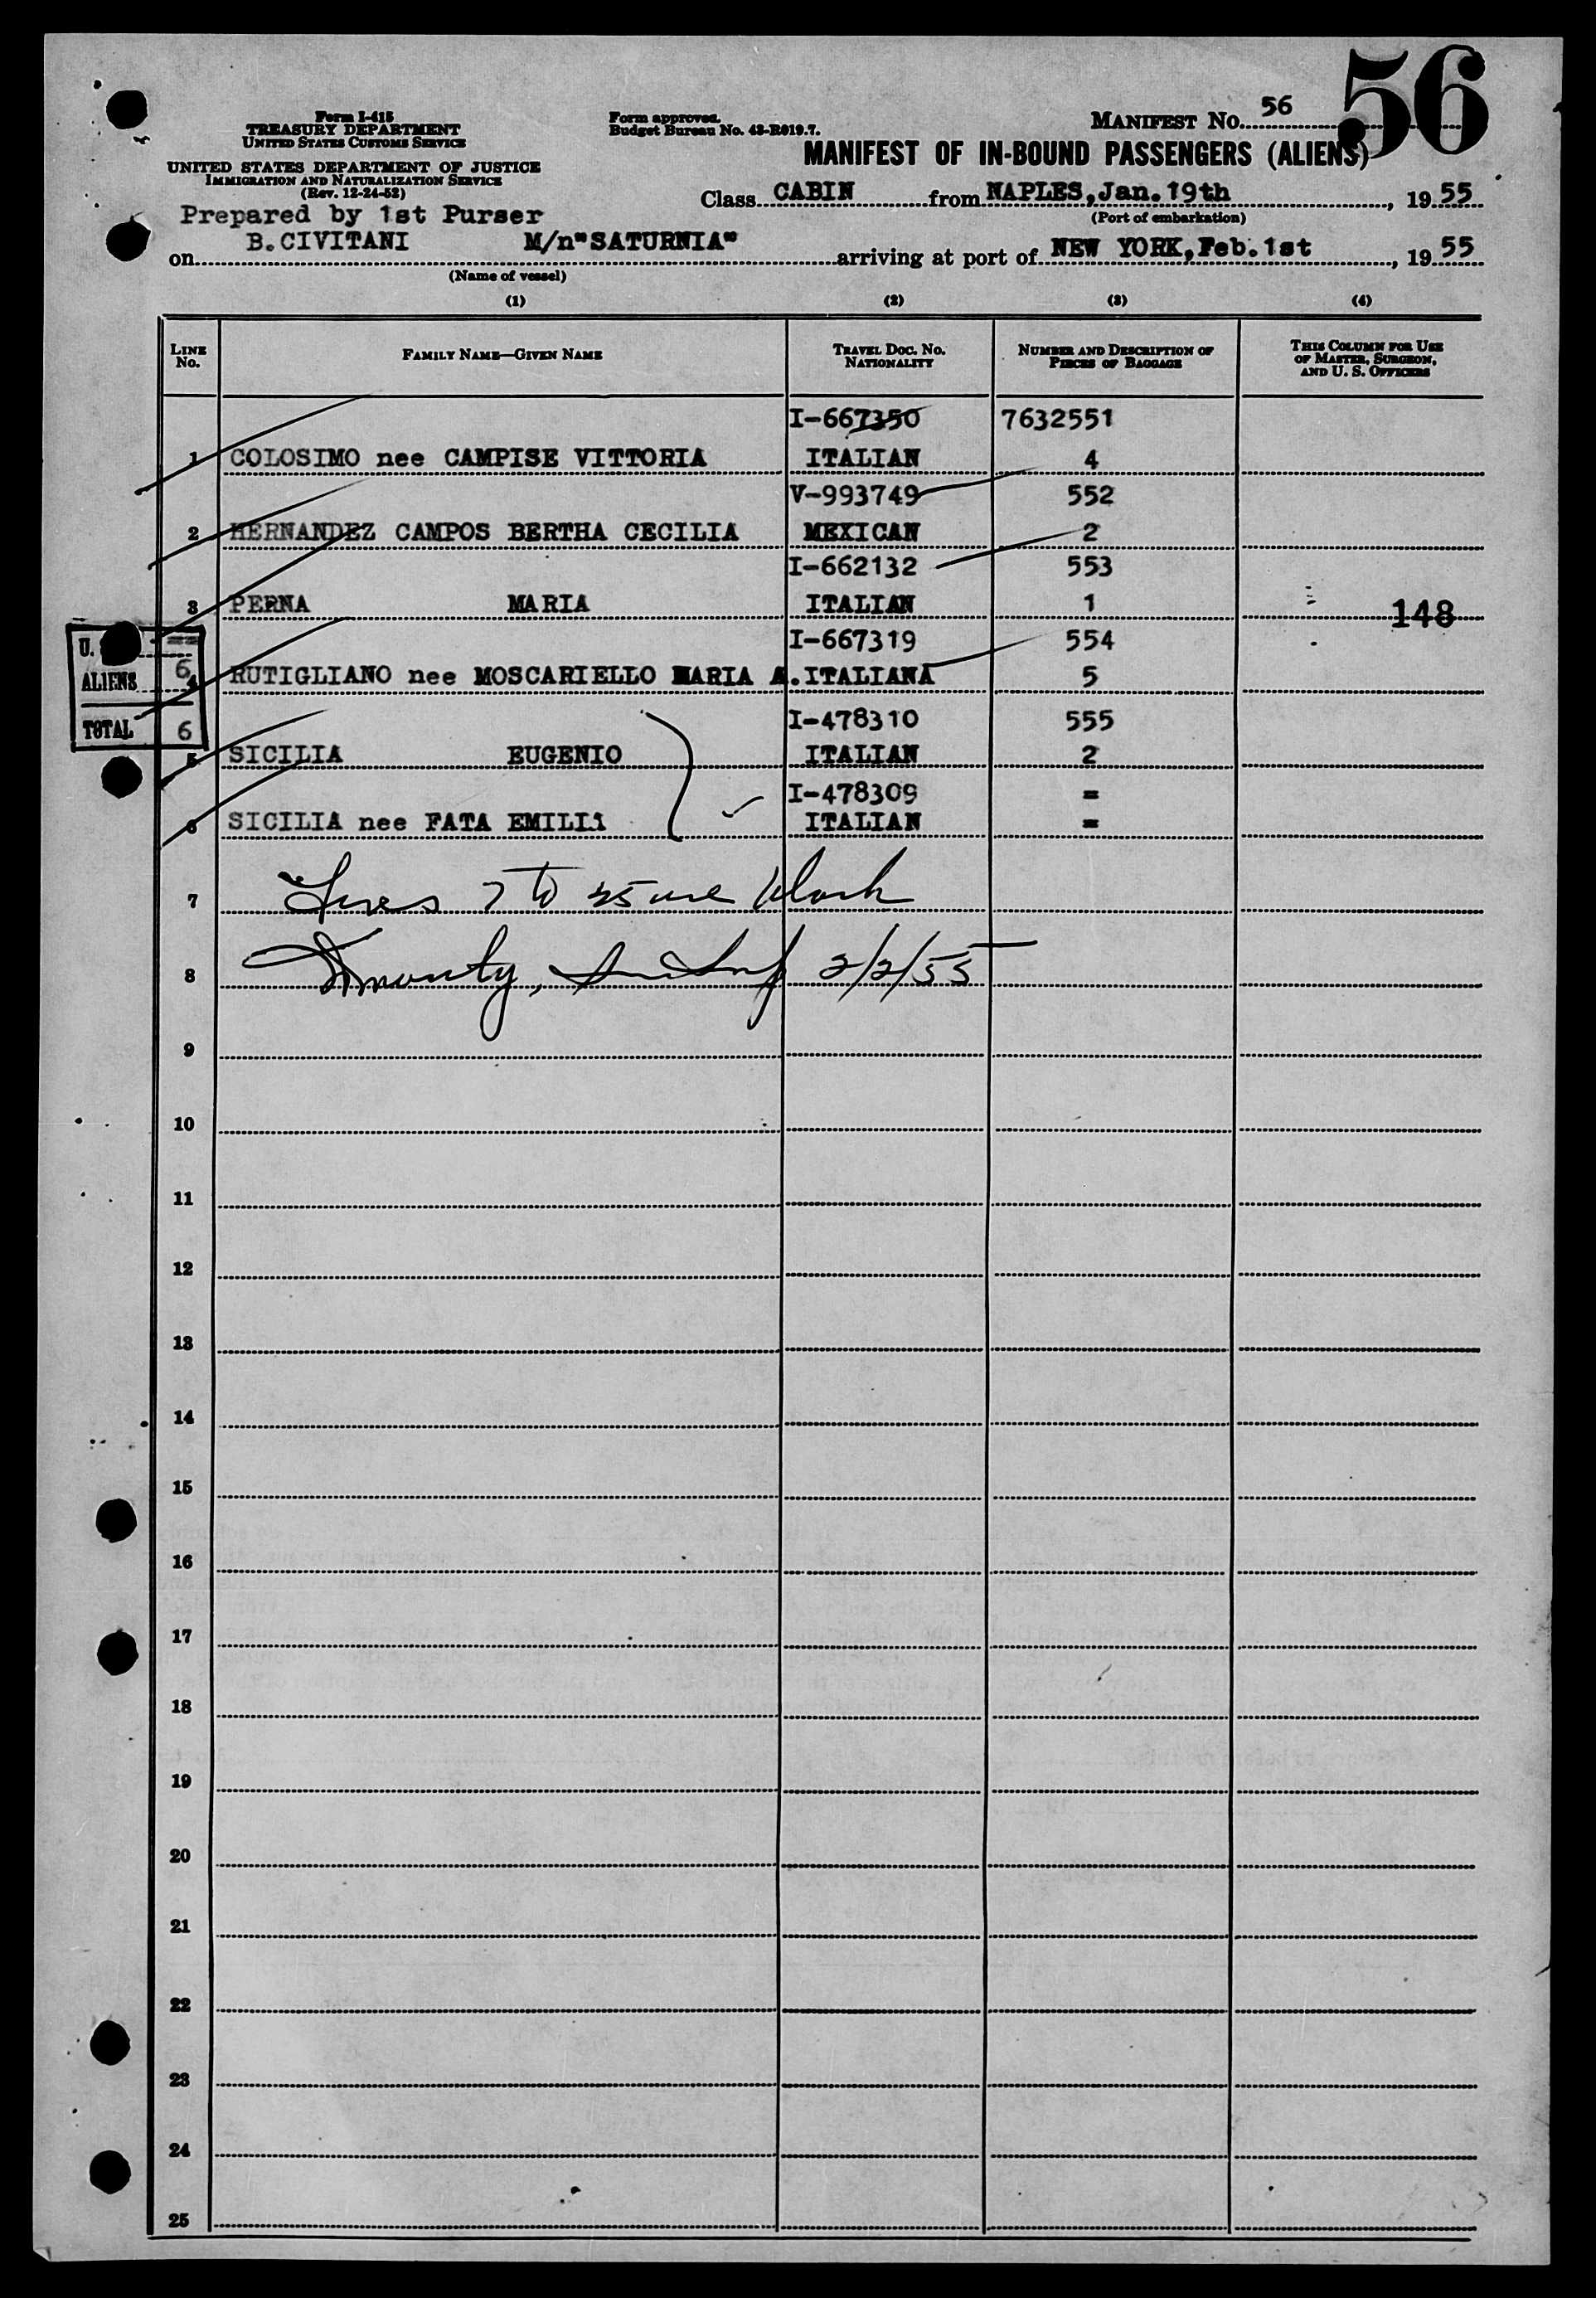 56
Form I-415
TREASURY DEPARTMENT
UNITED STATES CUSTOMS SERVICE
UNITED STATES DEPARTMENT OF JUSTICE
IMMIGRATION AND NATURALIZATION SERVICE
(Rev. 12-24-52)
Form approved.
Budget Bureau No. 43-R019.7.
MANIFEST No. 56
MANIFEST OF IN-BOUND PASSENGERS (ALIENS)
Class CABIN from NAPLES,Jan.19th, 1955
(Port of embarkation)
Prepared by 1st Purser
B.CIVITANI M/n"SATURNIA"
on arriving at port of NEW YORK,Feb.1st, 1955
(Name of vessel)
(1) (2) (3) (4)
LINE No. FAMILY NAME—GIVEN NAME TRAVEL DOC. NO. NATIONALITY NUMBER AND DESCRIPTION OF PIECES OF BAGGAGE THIS COLUMN FOR USE OF MASTER, SURGEON, AND U. S. OFFICERS
I-667350 7632551
1 COLOSIMO nee CAMPISE VITTORIA ITALIAN 4
V-993749 552
2 HERNANDEZ CAMPOS BERTHA CECILIA MEXICAN 2
I-662132 553
3 PERNA MARIA ITALIAN 1 148
I-667319 554
4 RUTIGLIANO nee MOSCARIELLO MARIA A. ITALIANA 5
I-478310 555
5 SICILIA EUGENIO ITALIAN 2
I-478309 =
6 SICILIA nee FATA EMILIA ITALIAN =
U.
ALIENS 6
TOTAL 6
7 Lines 7 to 25 are blank
8 2/2/55
9
10
11
12
13
14
15
16
17
18
19
20
21
22
23
24
25